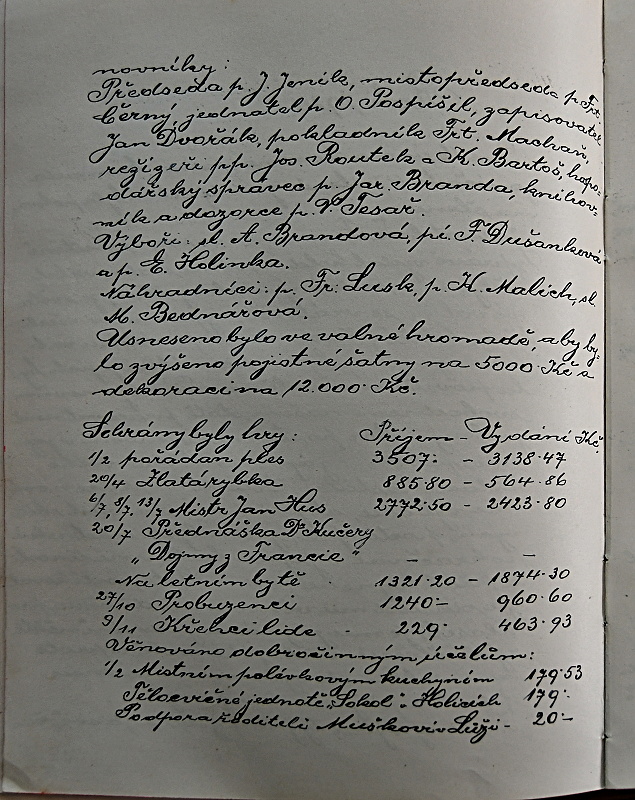 novníky:
Předseda p. J. Jeník, místopředseda p. Frt.
Černý, jednatel p. O. Pospíšil, zapisovatel
Jan Dvořák, pokladník Frt. Machaň,
režizeři pp. Jos. Routek a K. Bartoš, hospo-
dářský správec p. Jar. Branda, knihov-
ník a dozorce p. V. Tesař.
Výboři: sl. A. Brandová, pí. F. Dušanková
a p. E. Holinka.
Náhradníci: p. Fr. Lusk, p. K. Malich, sl.
M. Bednářová.
Usneseno bylo ve valné hromadě, aby by-
lo zvýšeno pojistné šatny na 5000 Kč a
dekorací na 12.000 Kč.
Sehrány byly hry: Příjem - Vydání Kč.
1/2 pořádán ples 3507.- - 3138.47
20/4 Zlatá rybka 885.80 - 564.86
6/7, 8/7, 13/7 Mistr Jan Hus 2772.50 - 2423.80
20/7 Přednáška Dr Kučery
„Dojmy z Francie" - -
Na letním bytě 1321.20 - 1874.30
27/10 Probuzenci 1240.- 960.60
9/11 Křehcí lidé 229.- 463.93
Věnováno dobročinným účelům:
1/2 Místním polévkovým kuchyním 179.53
Tělocvičné jednotě „Sokol" Holicích 179.-
Podpora řediteli Muškovi v Luži - 20.-